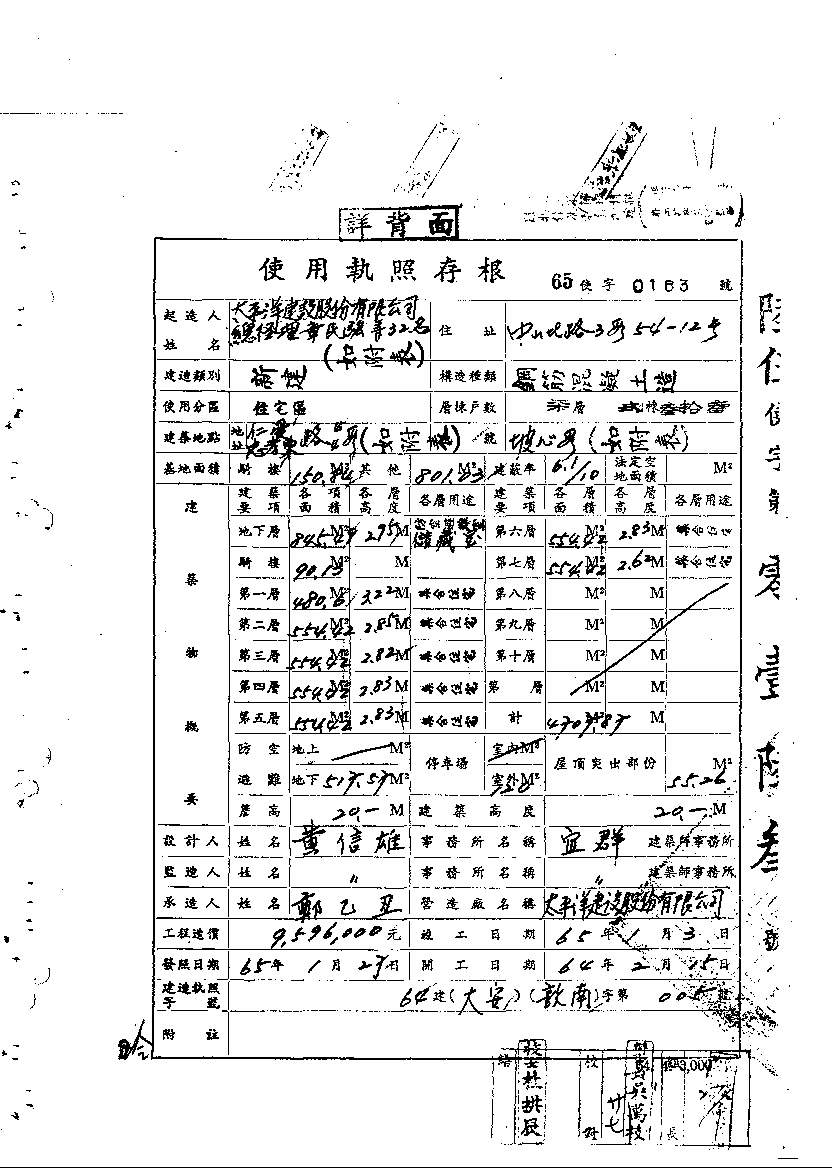 詳背面
使用執照存根 65使字0163號
起造人姓名 太平洋建設股份有限公司 總經理章民強等32名 (如附表) 住址 中山北路3段54-12號
建造類別 新建 構造種類 鋼筋混凝土造
使用分區 住宅區 層棟戶數 柒層 棟 參拾參
建築地點 地址 路4段(如附表) 號 坡心段(如附表)
基地面積 騎樓 150.84 M² 其他 801.23 M² 建蔽率 6.1/10 法定空地面積 M²
建築物概要
建築要項 各項面積 各層高度 各層用途 建築要項 各層面積 各層高度 各層用途
地下層 845.49 M² 2.95 M 儲藏室 第六層 554.42 M² 2.83 M 集合住宅
騎樓 90.13 M² M 第七層 554.42 M² 2.62 M 集合住宅
第一層 480.61 M² 3.22 M 集合住宅 第八層 M² M
第二層 554.42 M² 2.85 M 集合住宅 第九層 M² M
第三層 554.42 M² 2.82 M 集合住宅 第十層 M² M
第四層 554.42 M² 2.83 M 集合住宅 第 層 M² M
第五層 554.42 M² 2.83 M 集合住宅 計 4707.87 M² M
防空避難 地上 M² 停車場 室內 M² 屋頂突出部份 M²
地下 517.57 M² 室外 M² 55.26
簷高 20.- M 建築高度 20.- M
設計人 姓名 黃信雄 事務所名稱 宜群 建築師事務所
監造人 姓名 〃 事務所名稱 〃 建築師事務所
承造人 姓名 鄭乙丑 營造廠名稱 太平洋建設股份有限公司
工程造價 9,596,000元 竣工日期 65年1月3日
發照日期 65年1月27日 開工日期 64年2月15日
建造執照字號 64建(大安)(敦南)字第005號
附註
陸伍使字第零壹陸參號
核
校
長